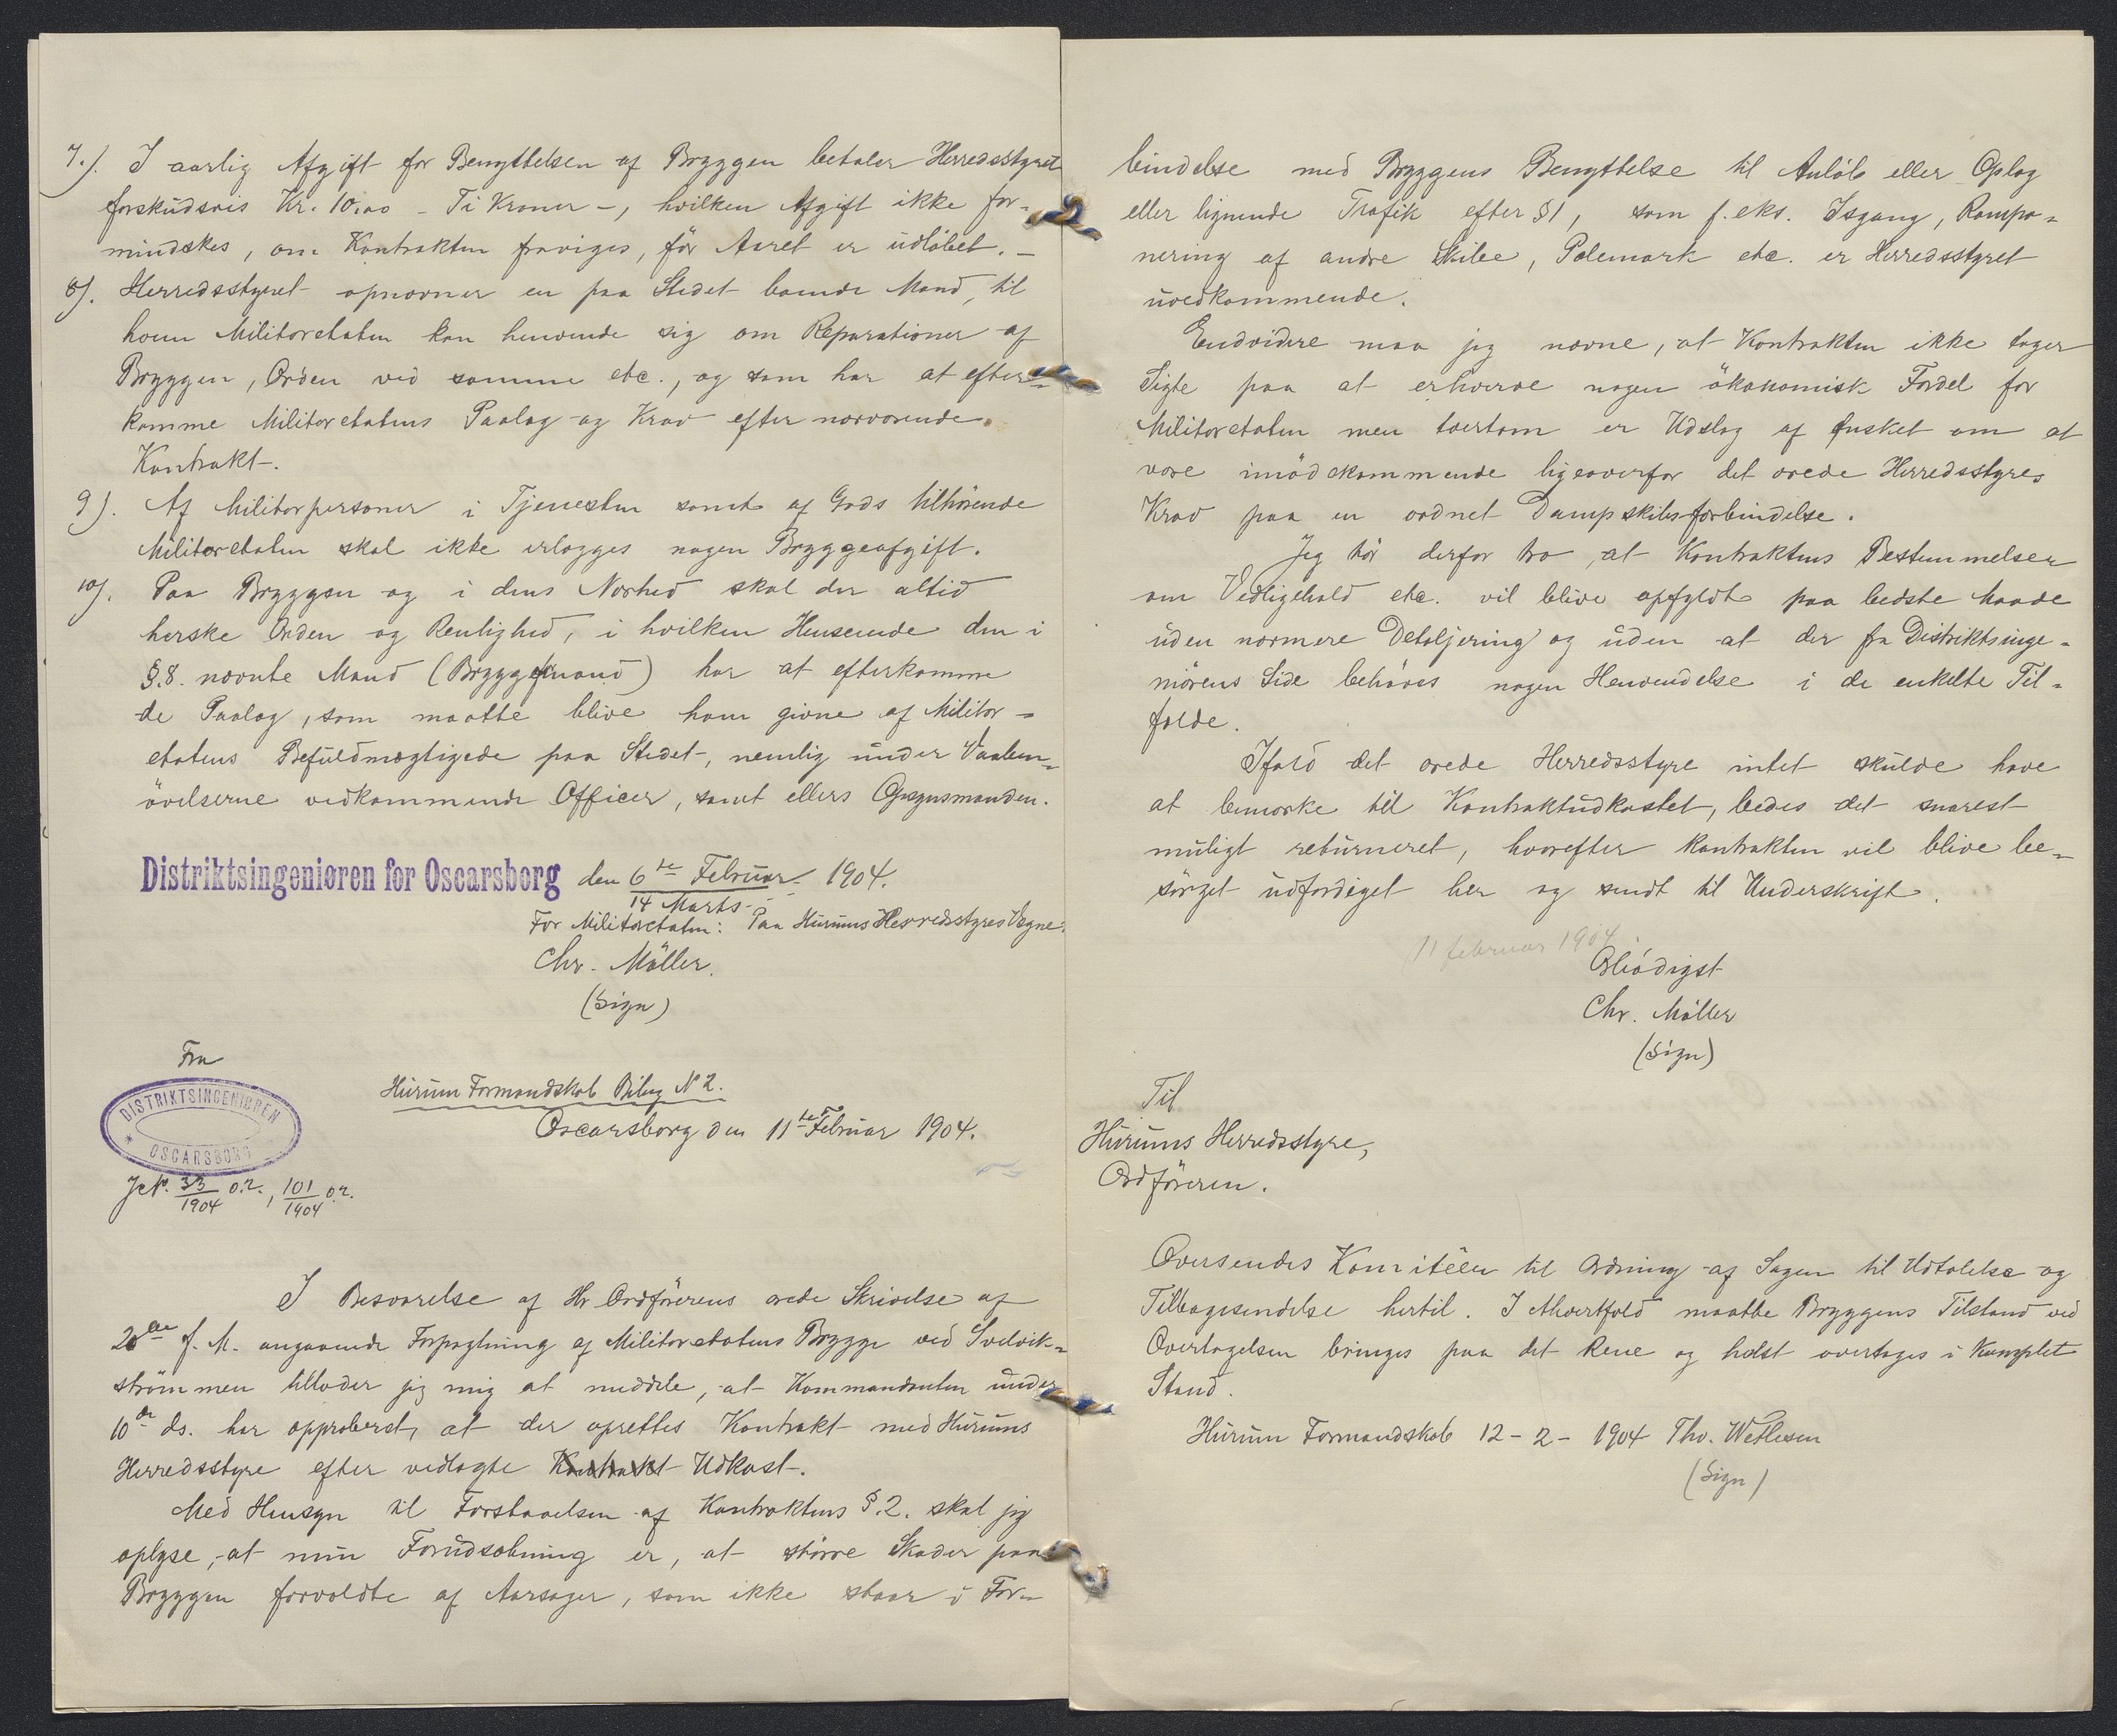 7.). I aarlig Afgift for Benyttelsen af Bryggen betaler Herredsstyret
forskudsvis Kr. 10,00 – Ti Kroner –, hvilken Afgift ikke for-
mindskes, om Kontrakten fraviges, før Aaret er udløbet. –
8). Herredsstyret opnævner en paa Stedet boende Mand, til
hvem Militæretaten kan henvende sig om Reparationer af
Bryggen, Orden ved samme etc., og som har at efter-
komme Militæretatens Paalæg og Krav efter nærværende
Kontrakt.
9). Af Militærpersoner i Tjenesten samt af Gods tilhørende
Militæretaten skal ikke erlægges nogen Bryggeafgift.
10). Paa Bryggen og i dens Nærhed skal der altid
herske Orden og Renlighed, i hvilken Henseende den i
§.8. nævnte Mand (Bryggemand) har at efterkomme
de Paalæg, som maatte blive ham givne af Militær-
etatens Befuldmægtigede paa Stedet, nemlig under Vaaben-
øvelserne vedkommende Officer, samt ellers Opsynsmanden.
Distriktsingeniøren for Oscarsborg den 6te Februar 1904.
14 Marts
For Militæretaten: Paa Hurums Herredsstyres Vegne:
Chr. Møller.
(Sign)
Fra
DISTRIKTSINGENIØREN
OSCARSBORG
Hurum Formandskab Bilag No 2.
Oscarsborg den 11te Februar 1904.
JNo. 33/1904 o.r., 101/1904 o.r.
I Besvarelse af Hr. Ordførerens ærede Skrivelse af
20de f. M. angaaende Forpagtning af Militæretatens Brygge ved Svelvik-
strømmen tillader jeg mig at meddele, at Kommandanten under
10de ds. har approberet, at der oprettes Kontrakt med Hurums
Herredsstyre efter vedlagte Kontrakt Udkast.
Med Hensyn til Forstaaelsen af Kontraktens §.2. skal jeg
oplyse, at min Forudsætning er, at større Skader paa
Bryggen forvoldte af Aarsager, som ikke staar i For-
bindelse med Bryggens Benyttelse til Anløb eller Oplag
eller lignende Trafik efter §1, som f. eks. Isgang, Rampo-
nering af andre Skibe, Pælemark etc. er Herredsstyret
uvedkommende.
Endvidere maa jeg nævne, at Kontrakten ikke tager
Sigte paa at erhverve nogen økonomisk Fordel for
Militæretaten men tvertom er Udslag af Ønsket om at
være imødekommende ligeoverfor det ærede Herredsstyres
Krav paa en ordnet Dampskibsforbindelse.
Jeg tør derfor tro, at Kontraktens Bestemmelser
om Vedligehold etc. vil blive opfyldt paa bedste Maade
uden nærmere Detaljering og uden at der fra Distriktsinge-
niørens Side behøves nogen Henvendelse i de enkelte Til-
fælde.
Ifald det ærede Herredsstyre intet skulde have
at bemærke til Kontraktudkastet, bedes det snarest
muligt returneret, hvorefter Kontrakten vil blive be-
sørget udfærdiget her og sendt til Underskrift.
11 februar 1904.
Ærbødigst
Chr. Møller
(Sign)
Til
Hurums Herredsstyre,
Ordføreren.
Oversendes Komitéen til Ordning af Sagen til Udtalelse og
Tilbagesendelse hertil. I Ahvertfald maatte Bryggens Tilstand ved
Overtagelsen bringes paa det Rene og helst overtages i komplet
Stand.
Hurum Formandskab 12-2-1904 Tho. Wetlesen
(Sign)